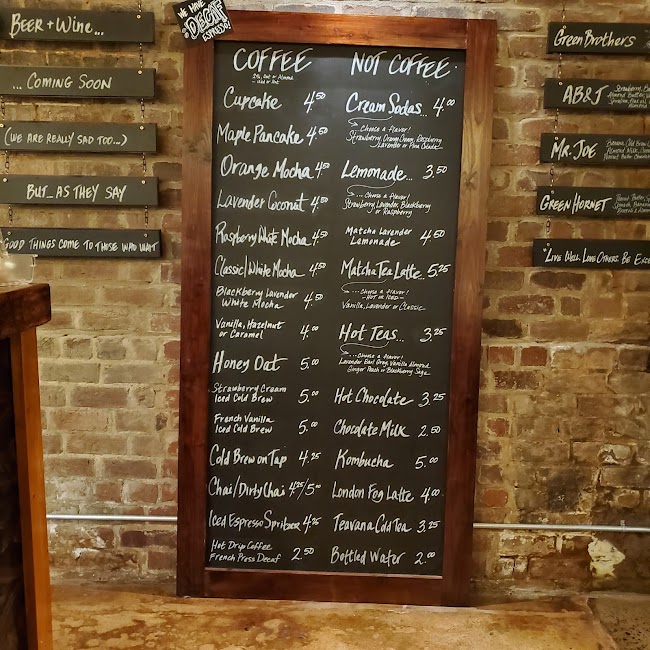 Beer + Wine...
...Coming Soon
(We are really sad too...)
But... as they say
Good things come to those who wait
We have
Decaf
Espresso!
Coffee
Cupcake 4.50
Maple Pancake 4.50
Orange Mocha 4.50
Lavender Coconut 4.50
Raspberry White Mocha 4.50
Classic/White Mocha 4.50
Blackberry Lavender
White Mocha 4.50
Vanilla, Hazelnut
or Caramel 4.00
Honey Oat 5.00
Strawberry Cream
Iced Cold Brew 5.00
French Vanilla
Iced Cold Brew 5.00
Cold Brew on Tap 4.25
Chai/Dirty Chai 4.25/5.00
Iced Espresso Spritzer 4.75
Hot Drip Coffee
French Press Decaf 2.50
Not Coffee
Cream Sodas... 4.00
...Choose a flavor!
Strawberry, Orange Cream, Raspberry
Lavender or Pina Colada
Lemonade... 3.50
...Choose a flavor!
Strawberry, Lavender, Blackberry
or Raspberry
Matcha Lavender
Lemonade 4.50
Matcha Tea Latte... 5.25
...Choose a flavor!
-Hot or Iced-
Vanilla, Lavender or Classic
Hot Teas... 3.25
...Choose a flavor!
Lavender Earl Grey, Vanilla Almond
Ginger Peach or Blackberry Sage
Hot Chocolate 3.25
Chocolate Milk 2.50
Kombucha 5.00
London Fog Latte 4.00
Teavana Cold Tea 3.25
Bottled Water 2.00
Green Brothers
AB&J
Mr. Joe
Green Hornet
"Live Well, Love Others, Be